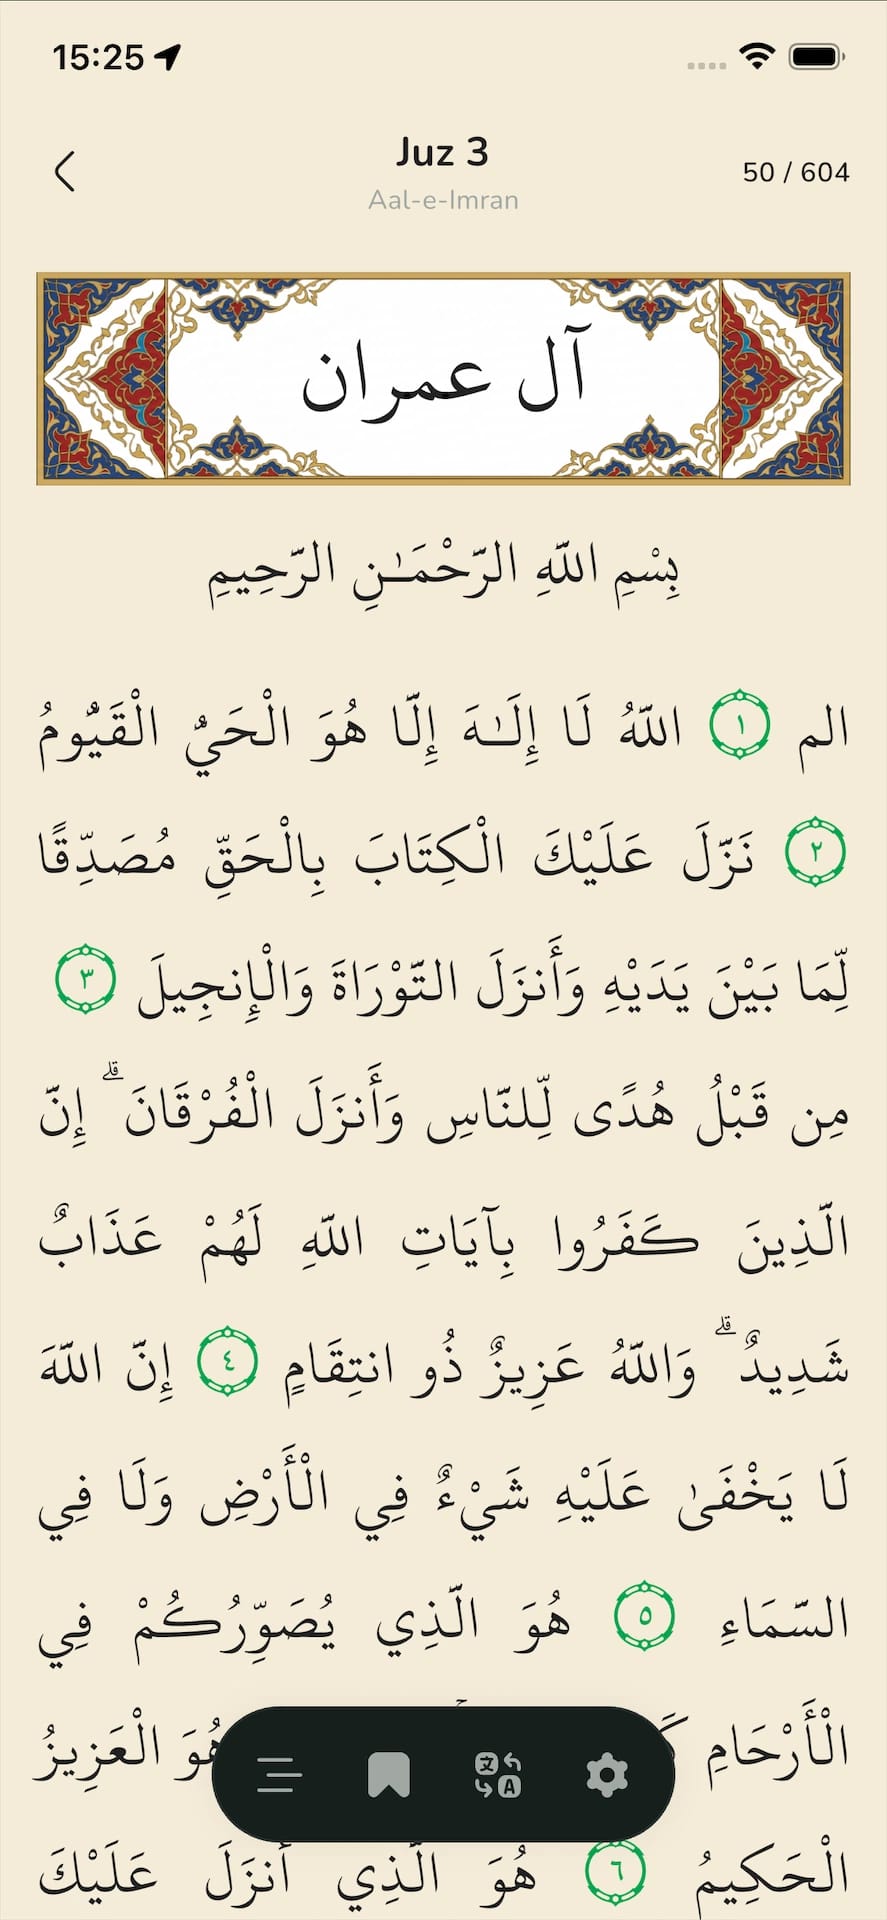 15:25
Juz 3
50 / 604
Aal-e-Imran
آل عمران
بِسْمِ اللَّهِ الرَّحْمَـٰنِ الرَّحِيمِ
الم ١ اللَّهُ لَا إِلَـٰهَ إِلَّا هُوَ الْحَيُّ الْقَيُّومُ
٢ نَزَّلَ عَلَيْكَ الْكِتَابَ بِالْحَقِّ مُصَدِّقًا
لِّمَا بَيْنَ يَدَيْهِ وَأَنزَلَ التَّوْرَاةَ وَالْإِنجِيلَ ٣
مِن قَبْلُ هُدًى لِّلنَّاسِ وَأَنزَلَ الْفُرْقَانَ ۗ إِنَّ
الَّذِينَ كَفَرُوا بِآيَاتِ اللَّهِ لَهُمْ عَذَابٌ
شَدِيدٌ ۗ وَاللَّهُ عَزِيزٌ ذُو انتِقَامٍ ٤ إِنَّ اللَّهَ
لَا يَخْفَىٰ عَلَيْهِ شَيْءٌ فِي الْأَرْضِ وَلَا فِي
السَّمَاءِ ٥ هُوَ الَّذِي يُصَوِّرُكُمْ فِي
الْأَرْحَامِ هُوَ الْعَزِيزُ
الْحَكِيمُ ٦ هُوَ الَّذِي أَنزَلَ عَلَيْكَ